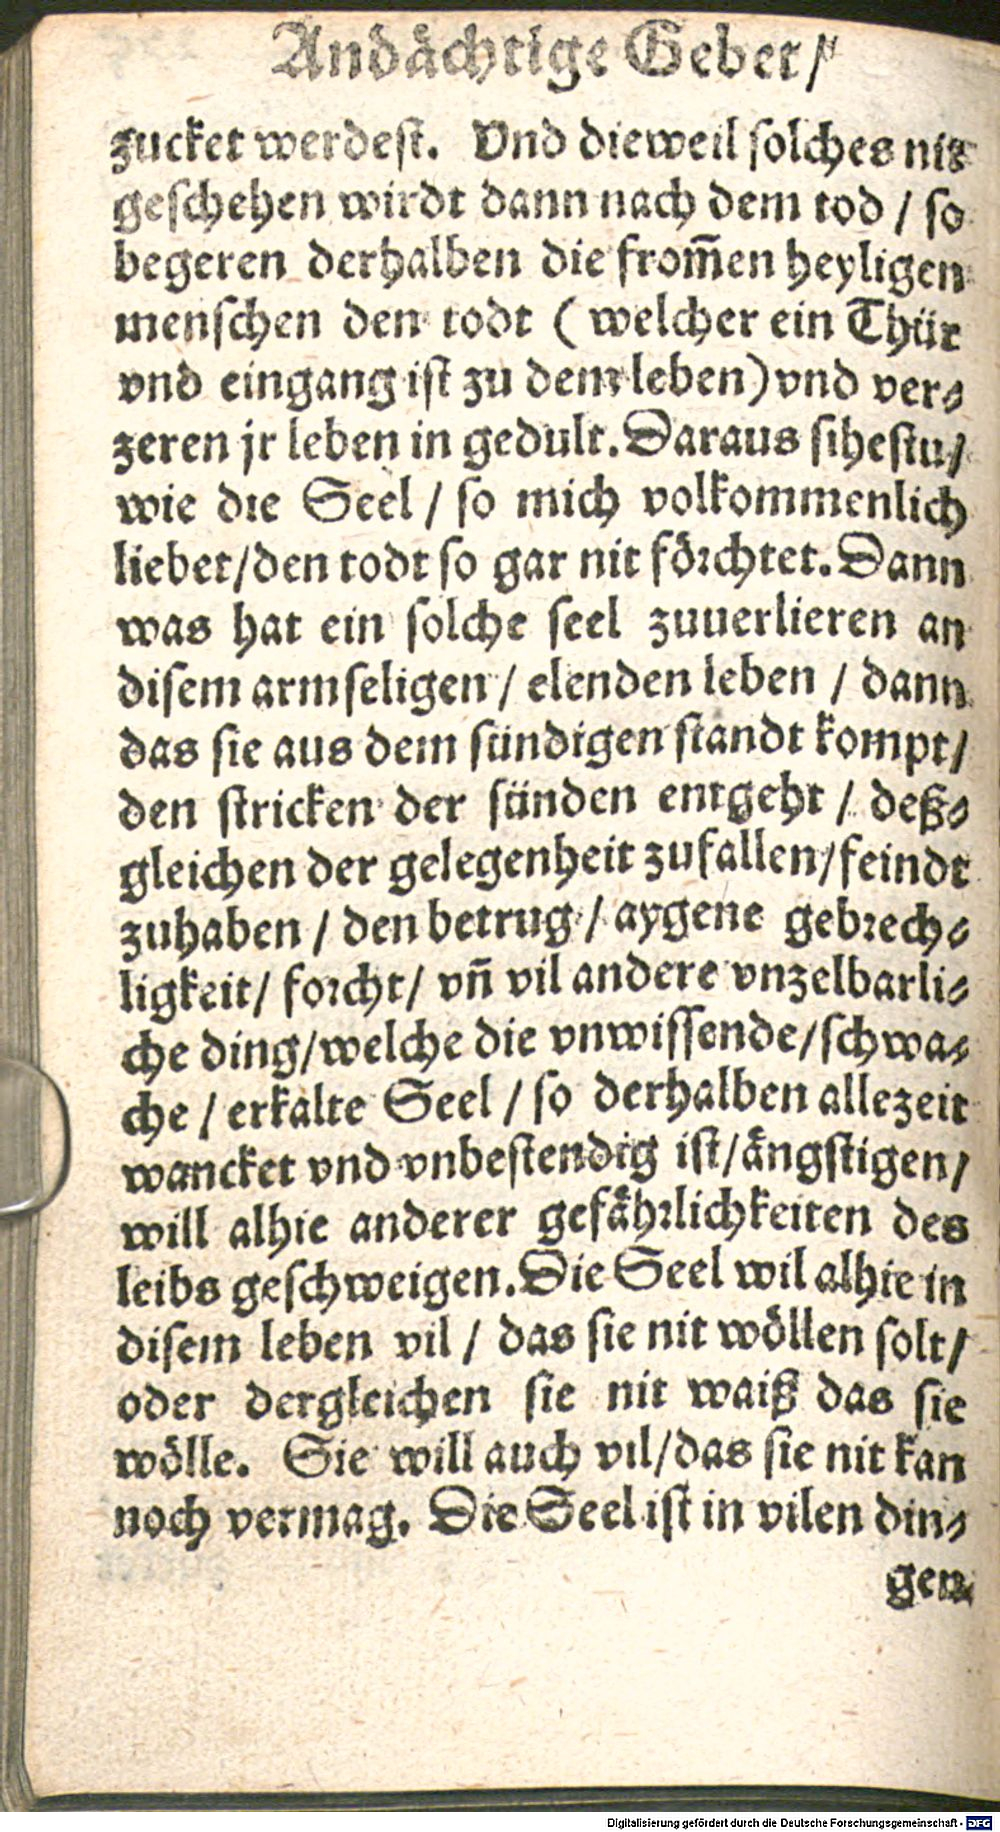 Andächtige Gebet/
zucket werdest. Vnd dieweil solches nit
geschehen wirdt dann nach dem tod / so
begeren derhalben die from̄en heyligen
menschen den todt ( welcher ein Thür
vnd eingang ist zu dem leben) vnd ver⸗
zeren jr leben in gedult. Daraus sihestu/
wie die Seel / so mich volkommenlich
liebet/den todt so gar nit förchtet. Dann
was hat ein solche seel zuuerlieren an
disem armseligen / elenden leben / dann
das sie aus dem sündigen standt kompt/
den stricken der sünden entgeht / deß⸗
gleichen der gelegenheit zufallen/feindt
zuhaben / den betrug / aygene gebrech⸗
ligkeit/ forcht/ vñ vil andere vnzelbarli⸗
che ding/welche die vnwissende/schwa⸗
che / erkalte Seel / so derhalben allezeit
wancket vnd vnbestendig ist/ängstigen/
will alhie anderer gefährlichkeiten des
leibs geschweigen. Die Seel wil alhie in
disem leben vil / das sie nit wöllen solt/
oder dergleichen sie nit waiß das sie
wölle. Sie will auch vil/das sie nit kan
noch vermag. Die Seel ist in vilen din⸗
gen
Digitalisierung gefördert durch die Deutsche Forschungsgemeinschaft - DFG